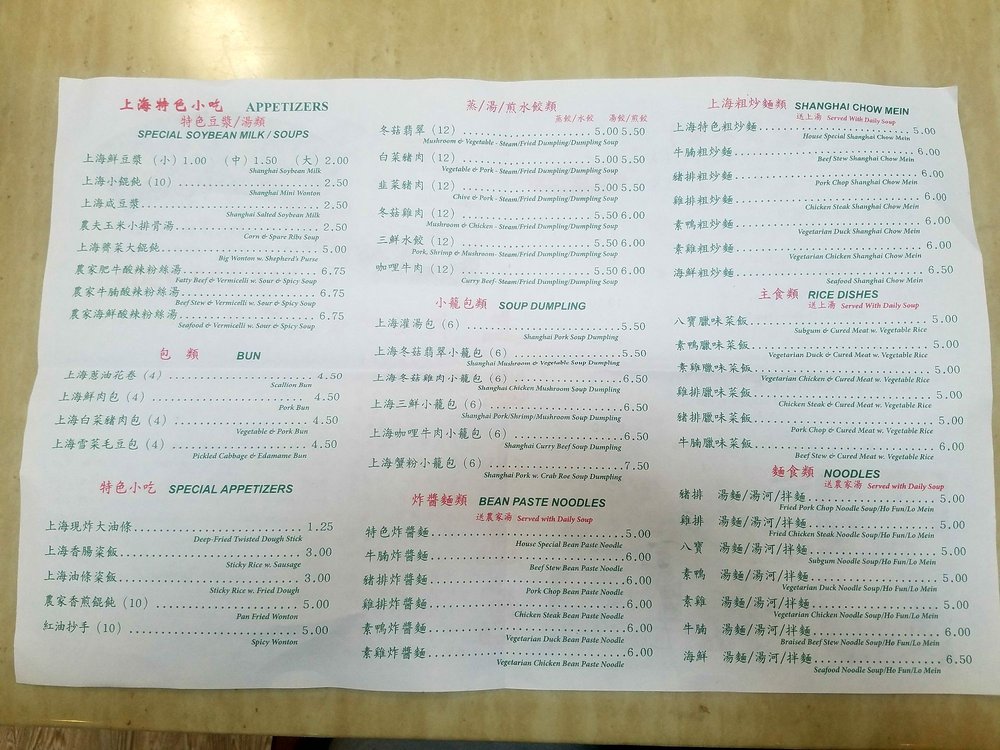 上海特色小吃 APPETIZERS
特色豆漿/湯類
SPECIAL SOYBEAN MILK / SOUPS
上海鮮豆漿 (小)1.00 (中)1.50 (大)2.00
Shanghai Soybean Milk
上海小餛飩(10) 2.50
Shanghai Mini Wonton
上海咸豆漿 2.50
Shanghai Salted Soybean Milk
農夫玉米小排骨湯 2.50
Corn & Spare Ribs Soup
上海薺菜大餛飩 5.00
Big Wonton w. Shepherd's Purse
農家肥牛酸辣粉絲湯 6.75
Fatty Beef & Vermicelli w. Sour & Spicy Soup
農家牛腩酸辣粉絲湯 6.75
Beef Stew & Vermicelli w. Sour & Spicy Soup
農家海鮮酸辣粉絲湯 6.75
Seafood & Vermicelli w. Sour & Spicy Soup
包 類 BUN
上海蔥油花卷(4) 4.50
Scallion Bun
上海鮮肉包(4) 4.50
Pork Bun
上海白菜豬肉包(4) 4.50
Vegetable & Pork Bun
上海雪菜毛豆包(4) 4.50
Pickled Cabbage & Edamame Bun
特色小吃 SPECIAL APPETIZERS
上海現炸大油條 1.25
Deep-Fried Twisted Dough Stick
上海香腸粢飯 3.00
Sticky Rice w. Sausage
上海油條粢飯 3.00
Sticky Rice w. Fried Dough
農家香煎餛飩(10) 5.00
Pan Fried Wonton
紅油抄手(10) 5.00
Spicy Wonton
蒸/湯/煎水餃類
蒸餃/水餃 湯餃/煎餃
冬菇翡翠(12) 5.00 5.50
Mushroom & Vegetable - Steam/Fried Dumpling/Dumpling Soup
白菜豬肉(12) 5.00 5.50
Vegetable & Pork - Steam/Fried Dumpling/Dumpling Soup
韭菜豬肉(12) 5.00 5.50
Chive & Pork - Steam/Fried Dumpling/Dumpling Soup
冬菇雞肉(12) 5.50 6.00
Mushroom & Chicken - Steam/Fried Dumpling/Dumpling Soup
三鮮水餃(12) 5.50 6.00
Pork, Shrimp & Mushroom- Steam/Fried Dumpling/Dumpling Soup
咖哩牛肉(12) 5.50 6.00
Curry Beef- Steam/Fried Dumpling/Dumpling Soup
小籠包類 SOUP DUMPLING
上海灌湯包(6) 5.50
Shanghai Pork Soup Dumpling
上海冬菇翡翠小籠包(6) 5.50
Shanghai Mushroom & Vegetable Soup Dumpling
上海冬菇雞肉小籠包(6) 6.50
Shanghai Chicken Mushroom Soup Dumpling
上海三鮮小籠包(6) 6.50
Shanghai Pork/Shrimp/Mushroom Soup Dumpling
上海咖哩牛肉小籠包(6) 6.50
Shanghai Curry Beef Soup Dumpling
上海蟹粉小籠包(6) 7.50
Shanghai Pork w. Crab Roe Soup Dumpling
炸醬麵類 BEAN PASTE NOODLES
送農家湯 Served with Daily Soup
特色炸醬麵 5.00
House Special Bean Paste Noodle
牛腩炸醬麵 6.00
Beef Stew Bean Paste Noodle
豬排炸醬麵 6.00
Pork Chop Bean Paste Noodle
雞排炸醬麵 6.00
Chicken Steak Bean Paste Noodle
素鴨炸醬麵 6.00
Vegetarian Duck Bean Paste Noodle
素雞炸醬麵 6.00
Vegetarian Chicken Bean Paste Noodle
上海粗炒麵類 SHANGHAI CHOW MEIN
送上湯 Served With Daily Soup
上海特色粗炒麵 5.00
House Special Shanghai Chow Mein
牛腩粗炒麵 6.00
Beef Stew Shanghai Chow Mein
豬排粗炒麵 6.00
Pork Chop Shanghai Chow Mein
雞排粗炒麵 6.00
Chicken Steak Shanghai Chow Mein
素鴨粗炒麵 6.00
Vegetarian Duck Shanghai Chow Mein
素雞粗炒麵 6.00
Vegetarian Chicken Shanghai Chow Mein
海鮮粗炒麵 6.50
Seafood Shanghai Chow Mein
主食類 RICE DISHES
送上湯 Served With Daily Soup
八寶臘味菜飯 5.00
Subgum & Cured Meat w. Vegetable Rice
素鴨臘味菜飯 5.00
Vegetarian Duck & Cured Meat w. Vegetable Rice
素雞臘味菜飯 5.00
Vegetarian Chicken & Cured Meat w. Vegetable Rice
雞排臘味菜飯 5.00
Chicken Steak & Cured Meat w. Vegetable Rice
豬排臘味菜飯 5.00
Pork Chop & Cured Meat w. Vegetable Rice
牛腩臘味菜飯 5.00
Beef Stew & Cured Meat w. Vegetable Rice
麵食類 NOODLES
送農家湯 Served with Daily Soup
豬排 湯麵/湯河/拌麵 5.00
Fried Pork Chop Noodle Soup/Ho Fun/Lo Mein
雞排 湯麵/湯河/拌麵 5.00
Fried Chicken Steak Noodle Soup/Ho Fun/Lo Mein
八寶 湯麵/湯河/拌麵 5.00
Subgum Noodle Soup/Ho Fun/Lo Mein
素鴨 湯麵/湯河/拌麵 5.00
Vegetarian Duck Noodle Soup/Ho Fun/Lo Mein
素雞 湯麵/湯河/拌麵 5.00
Vegetarian Chicken Noodle Soup/Ho Fun/Lo Mein
牛腩 湯麵/湯河/拌麵 5.00
Braised Beef Stew Noodle Soup/Ho Fun/Lo Mein
海鮮 湯麵/湯河/拌麵 6.50
Seafood Noodle Soup/Ho Fun/Lo Mein